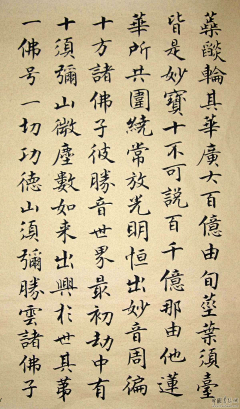 蘂燄輪其華廣大百億由旬莖葉須臺
皆是妙寶十不可説百千億那由他蓮
華所共圍繞常放光明恒出妙音周徧
十方諸佛子彼勝音世界最初劫中有
十須彌山微塵數如来出興於世其苐
一佛号一切功德山須彌勝雲諸佛子